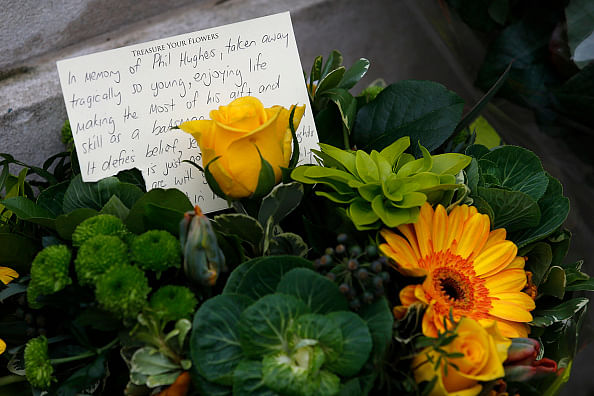 TREASURE YOUR FLOWERS
In memory of Phil Hughes, taken away
tragically so young, enjoying life
making the most of his gift and
skill as a batsman
It defies belief,
is just
are with
in